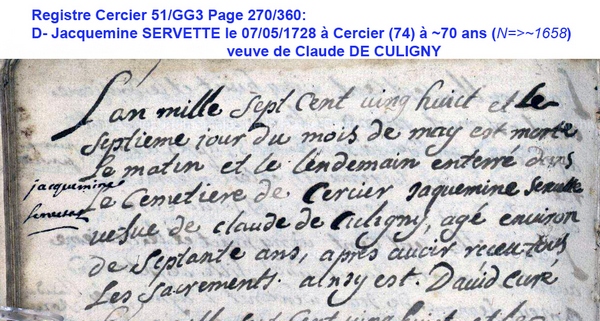 Registre Cercier 51/GG3 Page 270/360:
D- Jacquemine SERVETTE le 07/05/1728 à Cercier (74) à ~70 ans (N=>~1658)
veuve de Claude DE CULIGNY
L'an mille sept cent vingt huict et le
septieme jour du mois de may est morte
le matin et le lendemain enterré dans
jacquemine
le Cemetiere de Cercier Jaquemine Servette
vefve de claude de Culigny, agé environ
de septante ans, apres avoir receu tous
Les sacrements. ainsy est. David curé